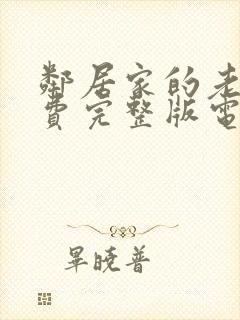 鄰居家的老
費完整版電
畢曉普